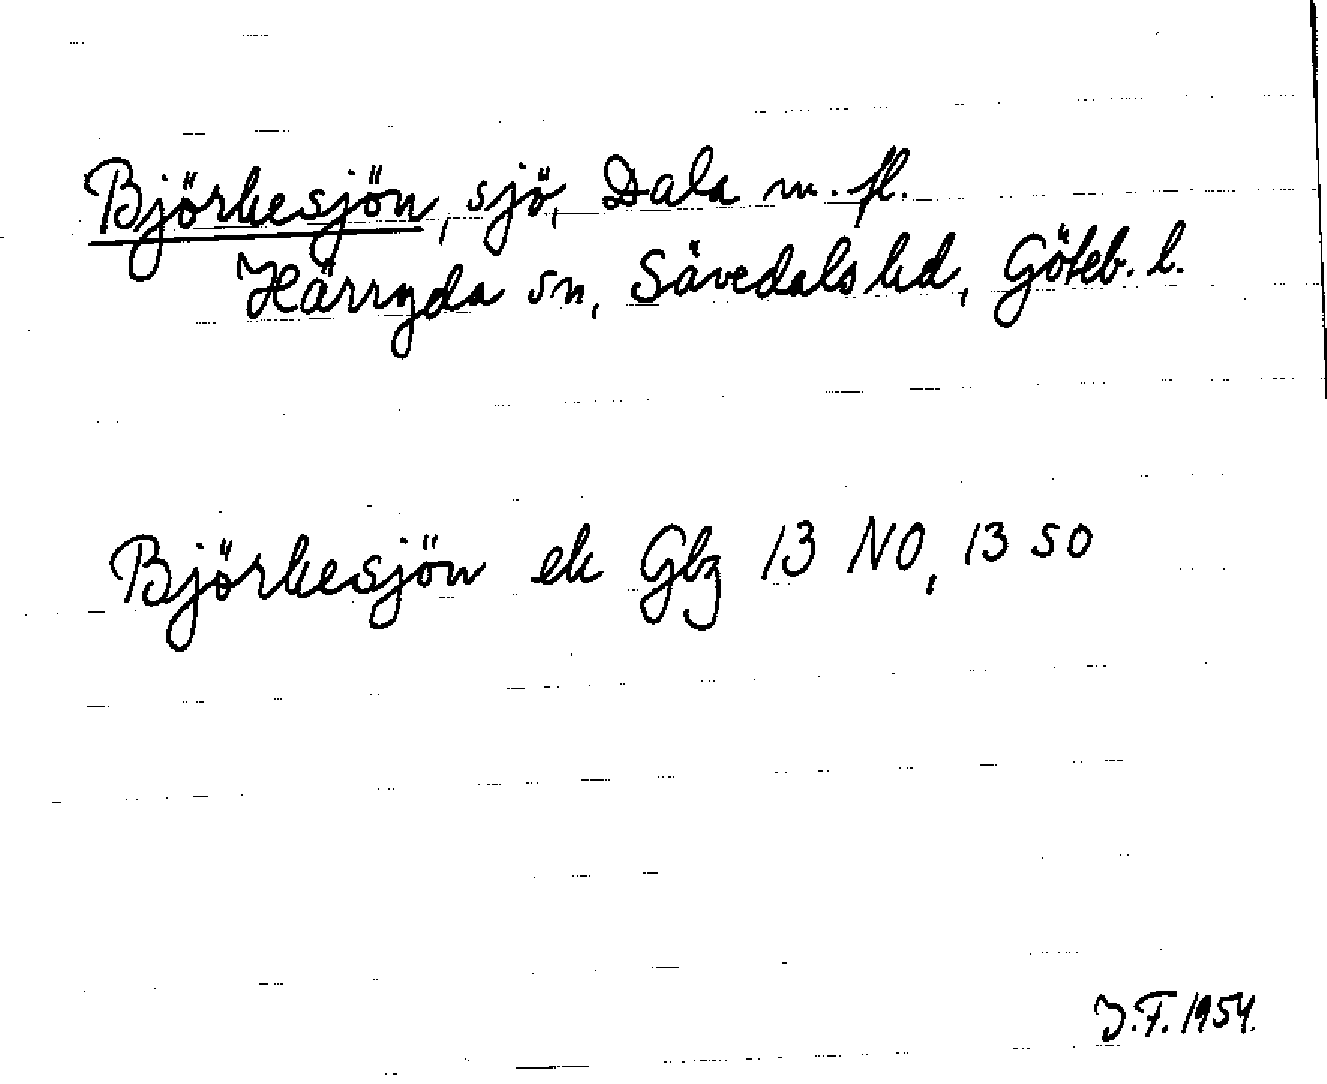 Björkesjön, sjö, Dala m. fl.
Härryda sn, Sävedals hd, Göteb. l.
Björkesjön ek Gbg 13 NO, 13 SO
J.F. 1954.